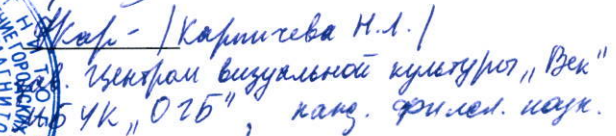 /Карпичева Н.Л./
зав. Центром визуальной культуры „Век"
МБУК „ОГБ", канд. филол. наук.